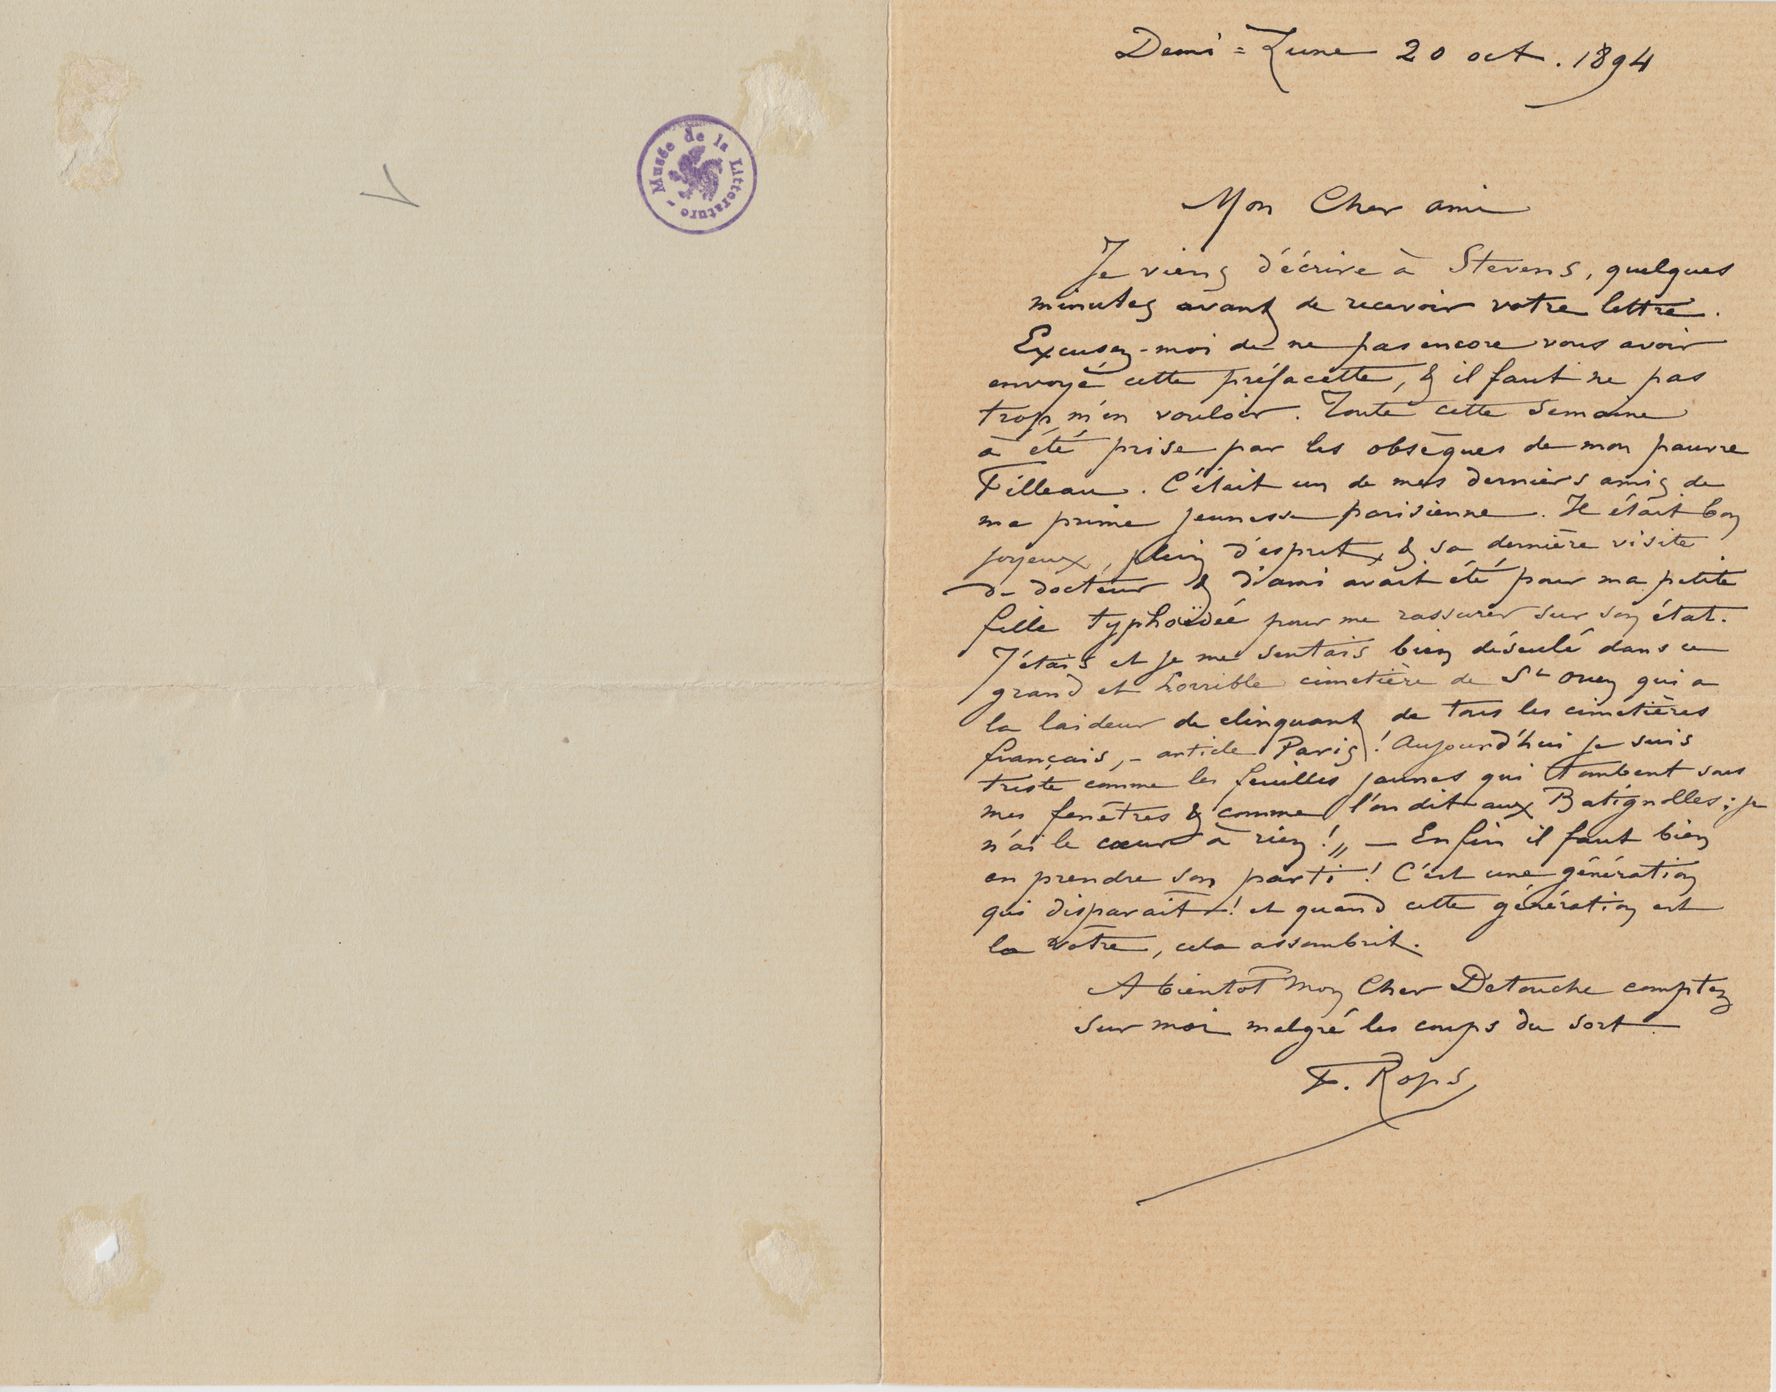 Musée de la Litterature -
Demi=Lune 20 oct. 1894
Mon Cher ami
Je viens d'écrire à Stevens, quelques
minutes avant de recevoir votre lettre.
Excusez-moi de ne pas encore vous avoir
envoyé cette préfacette, & il faut ne pas
trop m'en vouloir. Toute cette semaine
a été prise par les obsèques de mon pauvre
Filleau. C'était un de mes derniers amis de
ma prime jeunesse parisienne. Il était bon
joyeux, plein d'esprit, & sa dernière visite
de docteur & d'ami avait été pour ma petite
fille typhoïdée pour me rassurer sur son état.
J'étais et je me sentais bien désculé dans ce
grand et horrible cimetière de St Ouen qui a
la laideur de clinquant de tous les cimetières
français, - article Paris! Aujourd'hui je suis
triste comme les feuilles jaunes qui tombent sous
mes fenêtres & comme l'on dit aux Batignolles: je
n'ai le cœur à rien!„ — Enfin il faut bien
en prendre son parti! C'est une génération
qui disparaît! et quand cette génération est
la vôtre, cela assombrit.
A bientot mon Cher Detouche comptez
sur moi malgré les coups du sort.
F. Rops